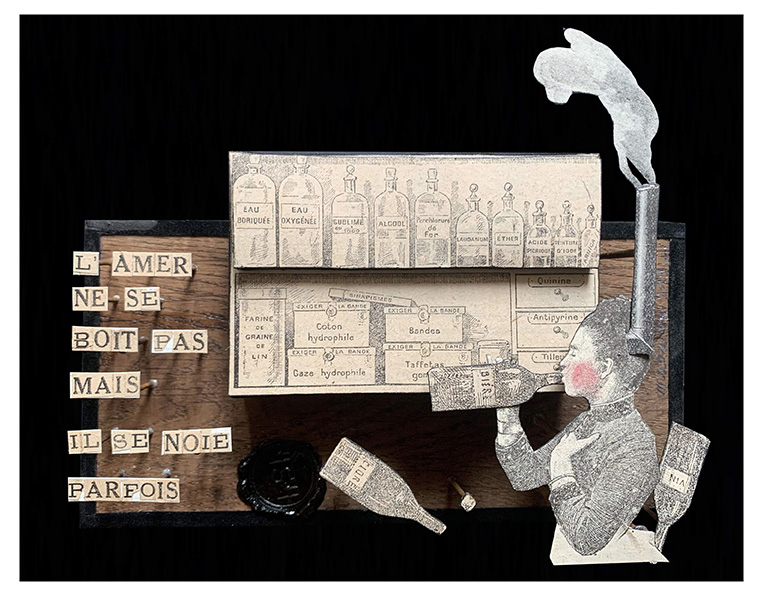 EAU BORIQUÉE
EAU OXYGÉNÉE
SUBLIMÉ
ALCOOL
Perchlorure de Fer
LAUDANUM
ETHER
ACIDE
TEINTURE D'IODE
SINAPISMES
Quinine
EXIGER LA BANDE
EXIGER LA BANDE
Antipyrine
FARINE DE GRAINE DE LIN
Coton hydrophile
Bandes
EXIGER LA BANDE
EXIGER LA BANDE
Tilleul
Gaze hydrophile
Taffetas
BIÈRE
L'AMER
NE SE
BOIT PAS
MAIS
IL SE NOIE
PARFOIS
CIDRE
VIN